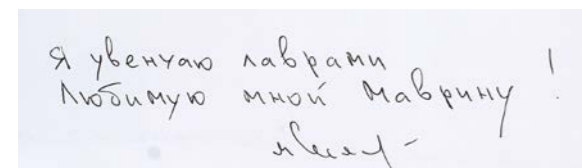 Я увенчаю лаврами
Любимую мной Маврину!